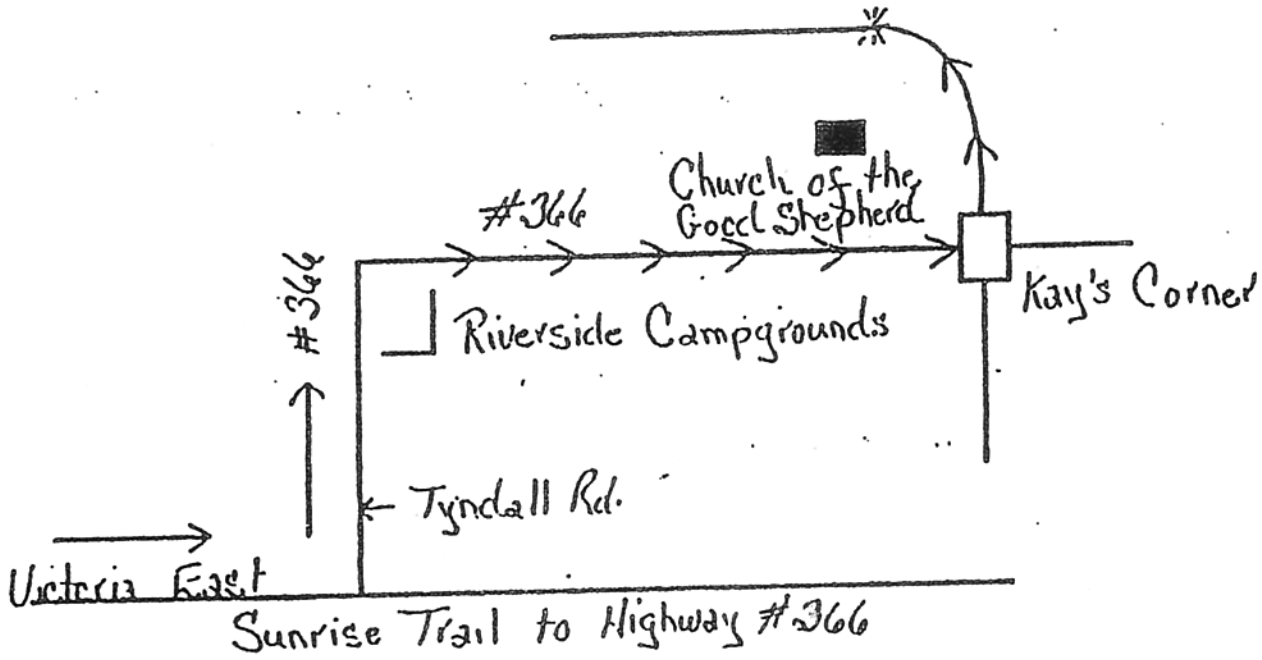 #366
Church of the
Good Shepherd
#366
Kay's Corner
Riverside Campgrounds
Tyndall Rd.
Victoria East
Sunrise Trail to Highway #366